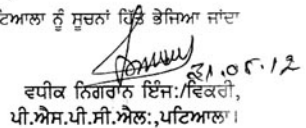 ਟਿਆਲਾ ਨੂੰ ਸੂਚਨਾਂ ਹਿੱਤ ਭੇਜਿਆ ਜਾਂਦਾ
31.05.12
ਵਧੀਕ ਨਿਗਰਾਨ ਇੰਜ:/ਵਿਕਰੀ,
ਪੀ.ਐਸ.ਪੀ.ਸੀ.ਐਲ:,ਪਟਿਆਲਾ।